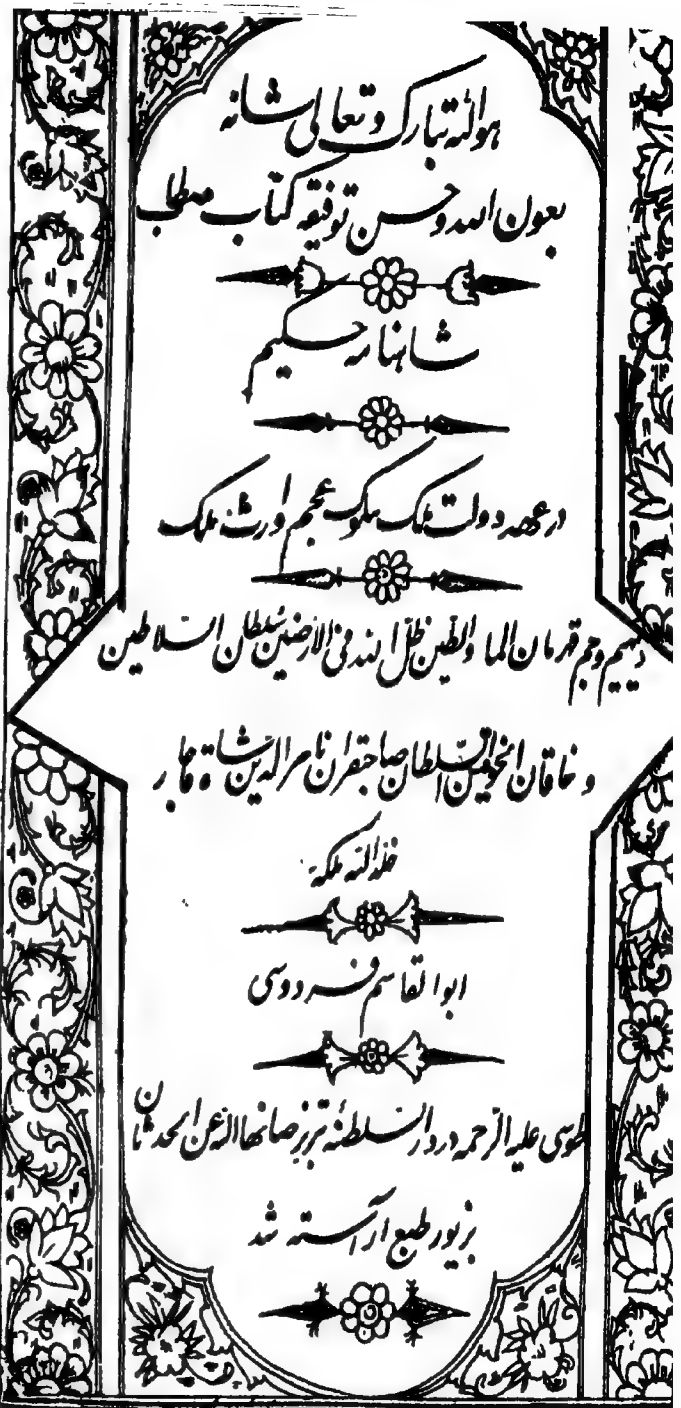 هوالله تبارک و تعالی شانه
بعون الله و حسن توفیقه کتاب مستطاب
شاهنامه حکیم
در عهد دولت ملک ملوک عجم وارث ملک
دیهیم و جم قهرمان الماء والطین ظل الله فی الارضین سلطان السلاطین
و خاقان الخواقین السلطان صاحبقران ناصرالدین شاه قاجار
خلد الله ملکه
ابوالقاسم فردوسی
طوسی علیه الرحمه در دارالسلطنهٔ تبریز صانها الله عن الحدثان
بزیور طبع آراسته شد